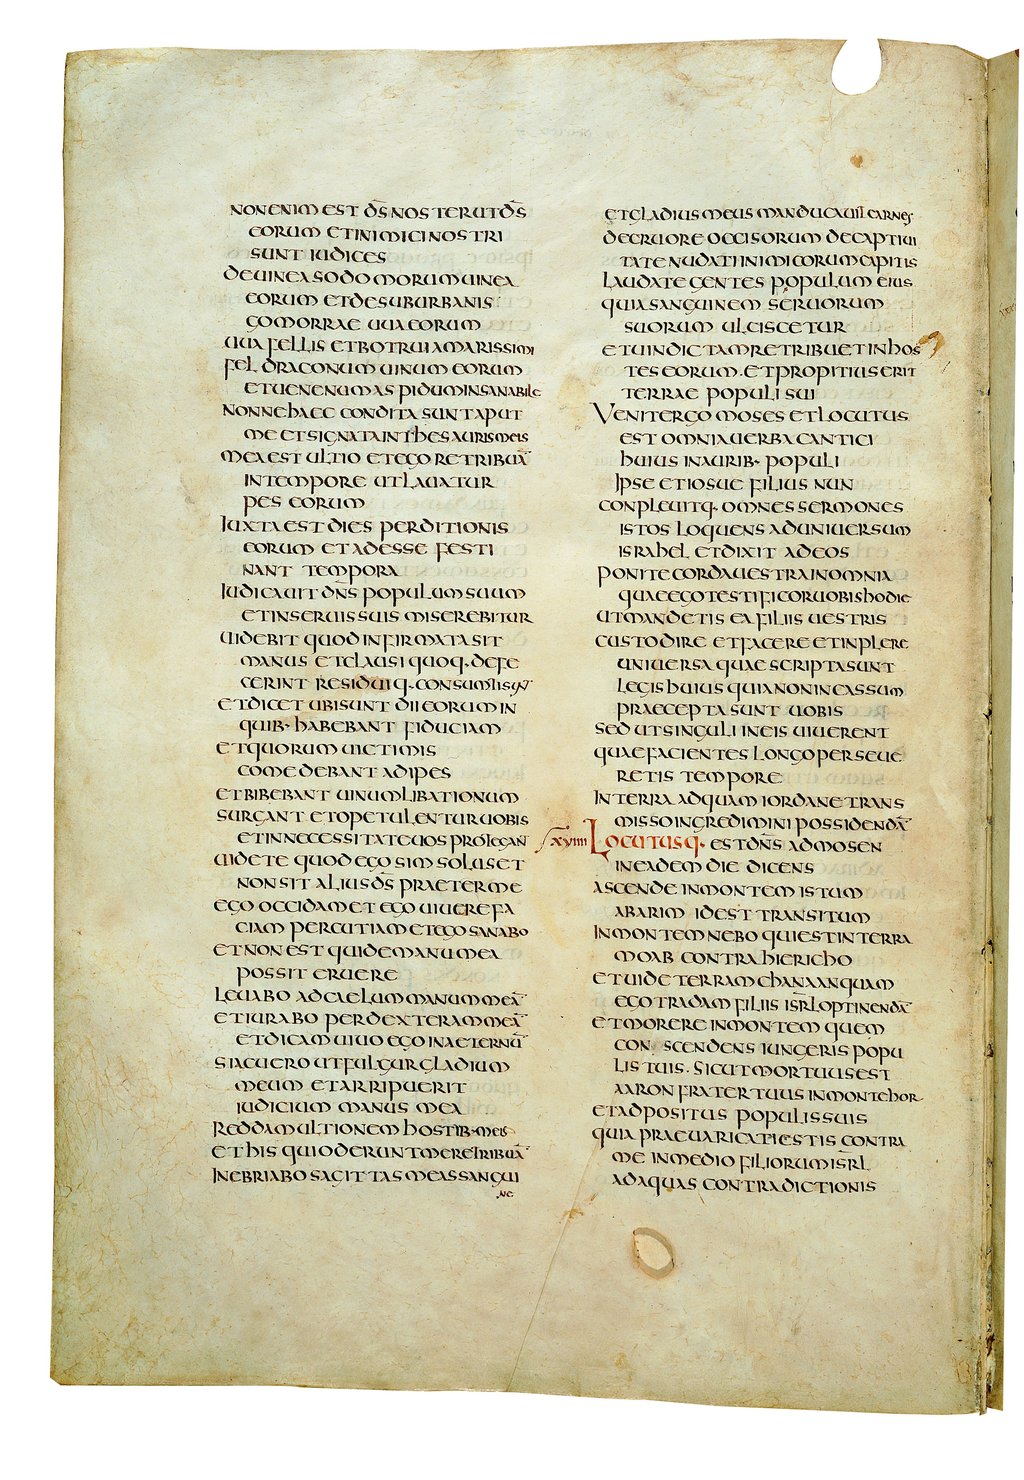 NON ENIM EST D̄S NOSTER UT D̄S
EORUM ET INIMICI NOSTRI
SUNT IUDICES
DE UINEA SODOMORUM UINEA
EORUM ET DE SUBURBANIS
GOMORRAE UUA EORUM
UUA FELLIS ET BOTRUI AMARISSIMI
FEL DRACONUM UINUM EORUM
ET UENENUM ASPIDUM INSANABILE
NONNE HAEC CONDITA SUNT APUT
ME ET SIGNATA IN THESAURIS MEIS
MEA EST ULTIO ET EGO RETRIBUĀ
IN TEMPORE UT LABATUR
PES EORUM
IUXTA EST DIES PERDITIONIS
EORUM ET ADESSE FESTI
NANT TEMPORA
IUDICAUIT DN̄S POPULUM SUUM
ET IN SERUIS SUIS MISEREBITUR
UIDEBIT QUOD INFIRMATA SIT
MANUS ET CLAUSI QUOQ· DEFE
CERINT RESIDUIQ· CONSUMTI S̄N̄T
ET DICET UBI SUNT DII EORUM IN
QUIB· HABEBANT FIDUCIAM
ET QUORUM UICTIMIS
COMEDEBANT ADIPES
ET BIBEBANT UINUM LIBATIONUM
SURGANT ET OPETULENTUR UOBIS
ET IN NECESSITATE UOS PROTEGANT
UIDETE QUOD EGO SIM SOLUS ET
NON SIT ALIUS D̄S PRAETER ME
EGO OCCIDAM ET EGO UIUERE FA
CIAM PERCUTIAM ET EGO SANABO
ET NON EST QUI DE MANU MEA
POSSIT ERUERE
LEUABO AD CAELUM MANUM MEĀ
ET IURABO PER DEXTERAM MEĀ
ET DICAM UIUO EGO IN AETERNŪ
SI ACUERO UT FULGUR GLADIUM
MEUM ET ARRIPUERIT
IUDICIUM MANUS MEA
REDDAM ULTIONEM HOSTIB· MEIS
ET HIS QUI ODERUNT ME RETRIBUĀ
INEBRIABO SAGITTAS MEAS SANGUI
NE
ET GLADIUS MEUS MANDUCAUIT CARNES
DE CRUORE OCCISORUM DE CAPTIUI
TATE NUDATI INIMICORUM CAPITIS
LAUDATE GENTES POPULUM EIUS
QUIA SANGUINEM SERUORUM
SUORUM ULCISCETUR
ET UINDICTAM RETRIBUET IN HOS
TES EORUM · ET PROPITIUS ERIT
TERRAE POPULI SUI
VENIT ERGO MOSES ET LOCUTUS
EST OMNIA UERBA CANTICI
HUIUS IN AURIB· POPULI
IPSE ET IOSUE FILIUS NUN
CONPLEUITQ· OMNES SERMONES
ISTOS LOQUENS AD UNIUERSUM
ISRAHEL ET DIXIT AD EOS
PONITE CORDA UESTRA IN OMNIA
QUAE EGO TESTIFICOR UOBIS HODIE
UT MANDETIS EA FILIIS UESTRIS
CUSTODIRE ET FACERE ET INPLERE
UNIUERSA QUAE SCRIPTA SUNT
LEGIS HUIUS QUIA NON IN CASSUM
PRAECEPTA SUNT UOBIS
SED UT SINGULI IN EIS UIUERENT
QUAE FACIENTES LONGO PERSEUE
RETIS TEMPORE
IN TERRA AD QUAM IORDANE TRANS
MISSO INGREDIMINI POSSIDENDĀ
XVIIII LOCUTUSQ· EST DN̄S AD MOSEN
IN EADEM DIE DICENS
ASCENDE IN MONTEM ISTUM
ABARIM ID EST TRANSITUM
IN MONTEM NEBO QUI EST IN TERRA
MOAB CONTRA HIERICHO
ET UIDE TERRAM CHANAAN QUAM
EGO TRADAM FILIIS ISR̄L OPTINENDĀ
ET MORERE IN MONTEM QUEM
CON SCENDENS IUNGERIS POPU
LIS TUIS · SICUT MORTUUS EST
AARON FRATER TUUS IN MONTE HOR
ET ADPOSITUS POPULIS SUIS
QUIA PRAEUARICATI ESTIS CONTRA
ME IN MEDIO FILIORUM ISR̄L
AD AQUAS CONTRADICTIONIS